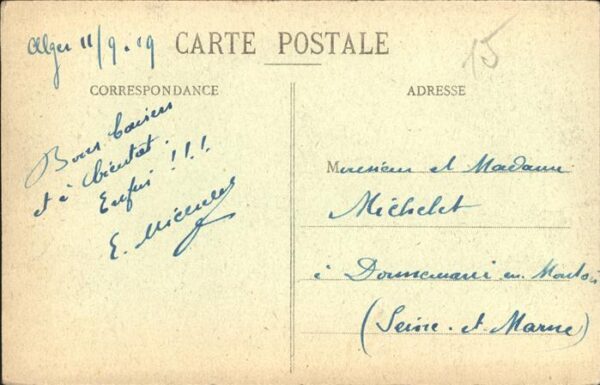 Alger 11/9.19
CARTE POSTALE
15
CORRESPONDANCE
ADRESSE
Bons baisers
et à bientôt.
Enfin !!!
E. Michelet
Monsieur et Madame
Michelet
à Donnemarie en Montois
(Seine-et-Marne)